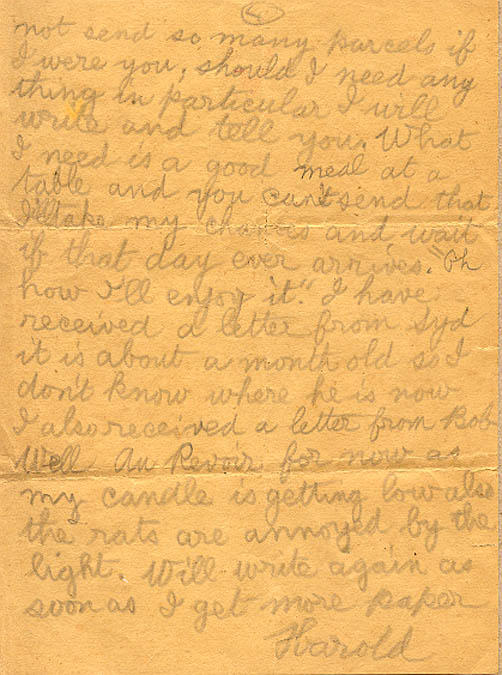 4
not send so many parcels if
I were you, should I need any
thing in particular I will
write and tell you. What
I need is a good meal at a
table and you can't send that
I'll take my chances and wait
if that day ever arrives. "Oh
how I'll enjoy it." I have
received a letter from Syd
it is about a month old so I
don't know where he is now
I also received a letter from Bob.
Well Au Revoir for now as
my candle is getting low also
the rats are annoyed by the
light. Will write again as
soon as I get more paper
Harold